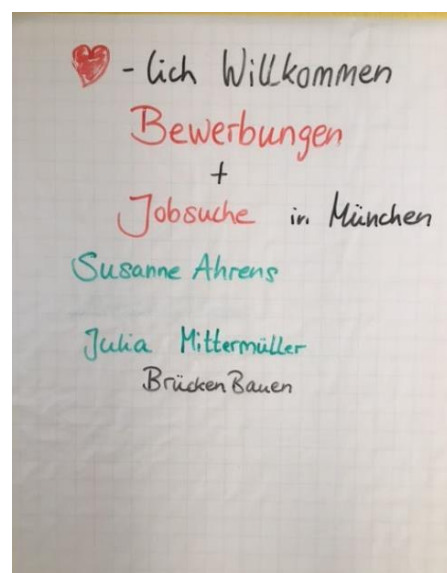 ❤-lich Willkommen
Bewerbungen
+
Jobsuche in München
Susanne Ahrens
Julia Mittermüller
BrückenBauen